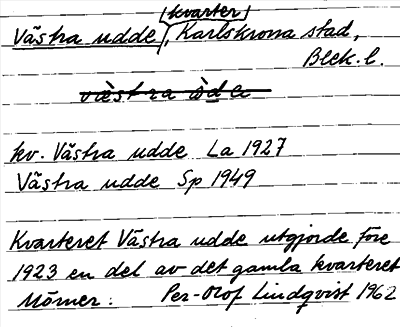 Västra udde (kvarter), Karlskrona stad,
Blek. l.
væ̀stra ùdde
kv. Västra udde La 1927
Västra udde Sp 1949
Kvarteret Västra udde utgjorde före
1923 en del av det gamla kvarteret
Mörner. Per-Olof Lindqvist 1962